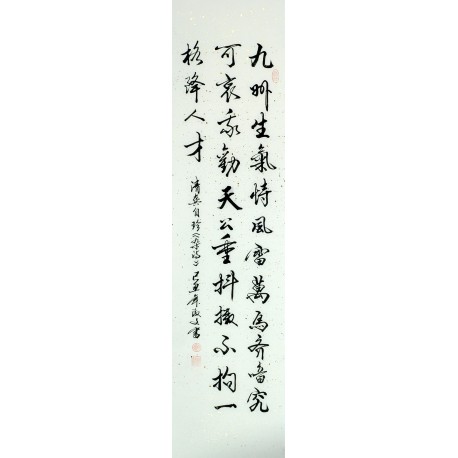 九州生氣恃風雷萬馬齊喑究
可哀我勸天公重抖擻不拘一
格降人才
清龔自珍